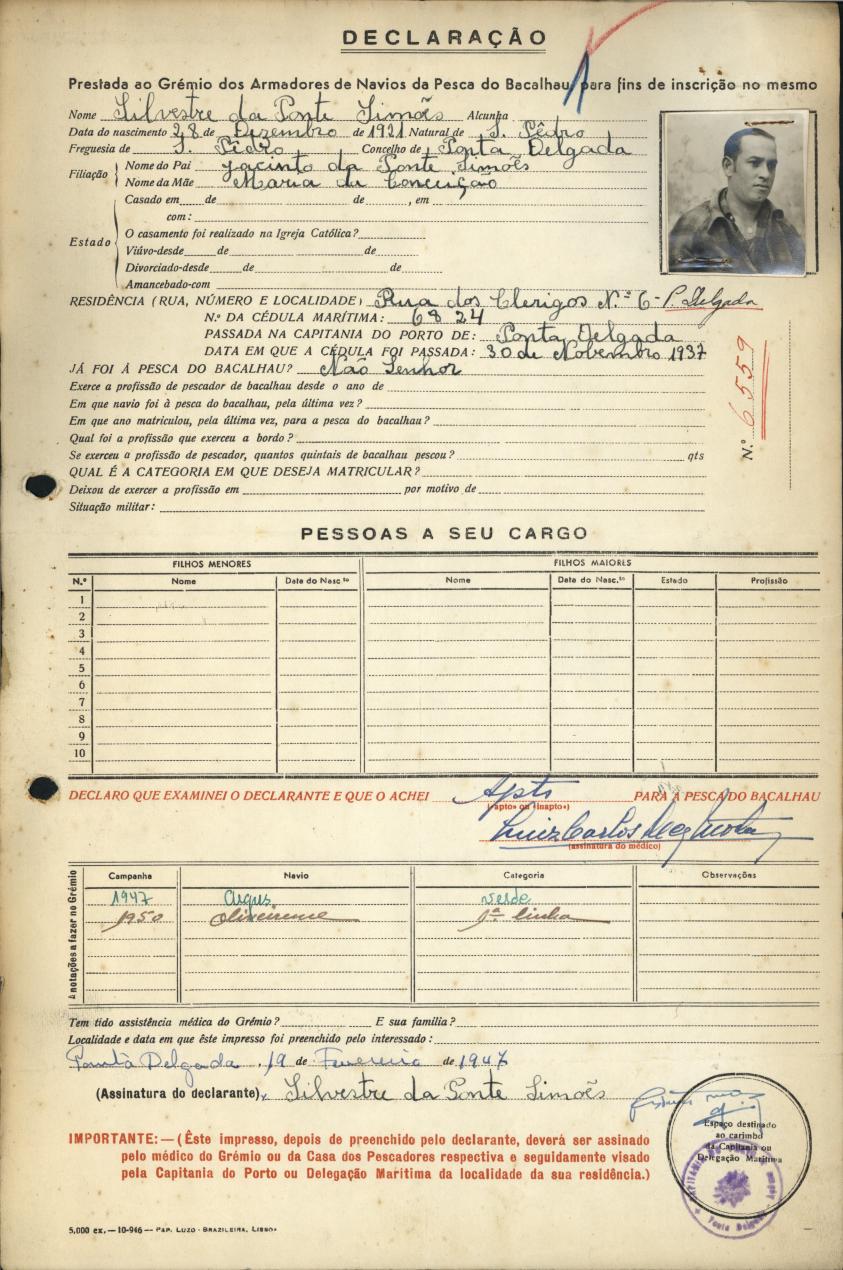 DECLARAÇÃO
Prestada ao Grémio dos Armadores de Navios da Pesca do Bacalhau, para fins de inscrição no mesmo
Nome Silvestre da Ponte Simões Alcunha
Data do nascimento 28 de Dezembro de 1921 Natural de S. Pêdro
Freguesia de S. Pêdro Concelho de Ponta Delgada
Filiação
Nome do Pai Jacinto da Ponte Simões
Nome da Mãe Maria da Conceição
Estado
Casado em de de , em
com:
O casamento foi realizado na Igreja Católica?
Viúvo-desde de de
Divorciado-desde de de
Amancebado-com
RESIDÊNCIA (RUA, NÚMERO E LOCALIDADE) Rua dos Clerigos N.º 6 - P. Delgada
N.º DA CÉDULA MARÍTIMA: 6824
PASSADA NA CAPITANIA DO PORTO DE: Ponta Delgada
DATA EM QUE A CÉDULA FOI PASSADA: 30 de Novembro 1937
JÁ FOI À PESCA DO BACALHAU? Não Senhor
Exerce a profissão de pescador de bacalhau desde o ano de
Em que navio foi à pesca do bacalhau, pela última vez?
Em que ano matriculou, pela última vez, para a pesca do bacalhau?
Qual foi a profissão que exerceu a bordo?
Se exerceu a profissão de pescador, quantos quintais de bacalhau pescou? qts
QUAL É A CATEGORIA EM QUE DESEJA MATRICULAR?
Deixou de exercer a profissão em por motivo de
Situação militar:
N.º 6559
PESSOAS A SEU CARGO
FILHOS MENORES FILHOS MAIORES
N.º Nome Data do Nasc.to Nome Data do Nasc.to Estado Profissão
1
2
3
4
5
6
7
8
9
10
DECLARO QUE EXAMINEI O DECLARANTE E QUE O ACHEI Apto PARA A PESCA DO BACALHAU
(«apto» ou «inapto»)
Luiz Carlos
(assinatura do médico)
Anotações a fazer no Grémio
Campanha Navio Categoria Observações
1947 Argus verde
1950 Oliveirense 1ª linha
Tem tido assistência médica do Grémio? E sua família?
Localidade e data em que êste impresso foi preenchido pelo interessado:
Ponta Delgada, 19 de Fevereiro de 1947
(Assinatura do declarante) Silvestre da Ponte Simões
Espaço destinado
ao carimbo
da Capitania ou
Delegação Marítima
IMPORTANTE: — (Êste impresso, depois de preenchido pelo declarante, deverá ser assinado
pelo médico do Grémio ou da Casa dos Pescadores respectiva e seguidamente visado
pela Capitania do Porto ou Delegação Marítima da localidade da sua residência.)
5.000 ex. — 10-946 — PAP. LUZO-BRAZILEIRA, LISBOA